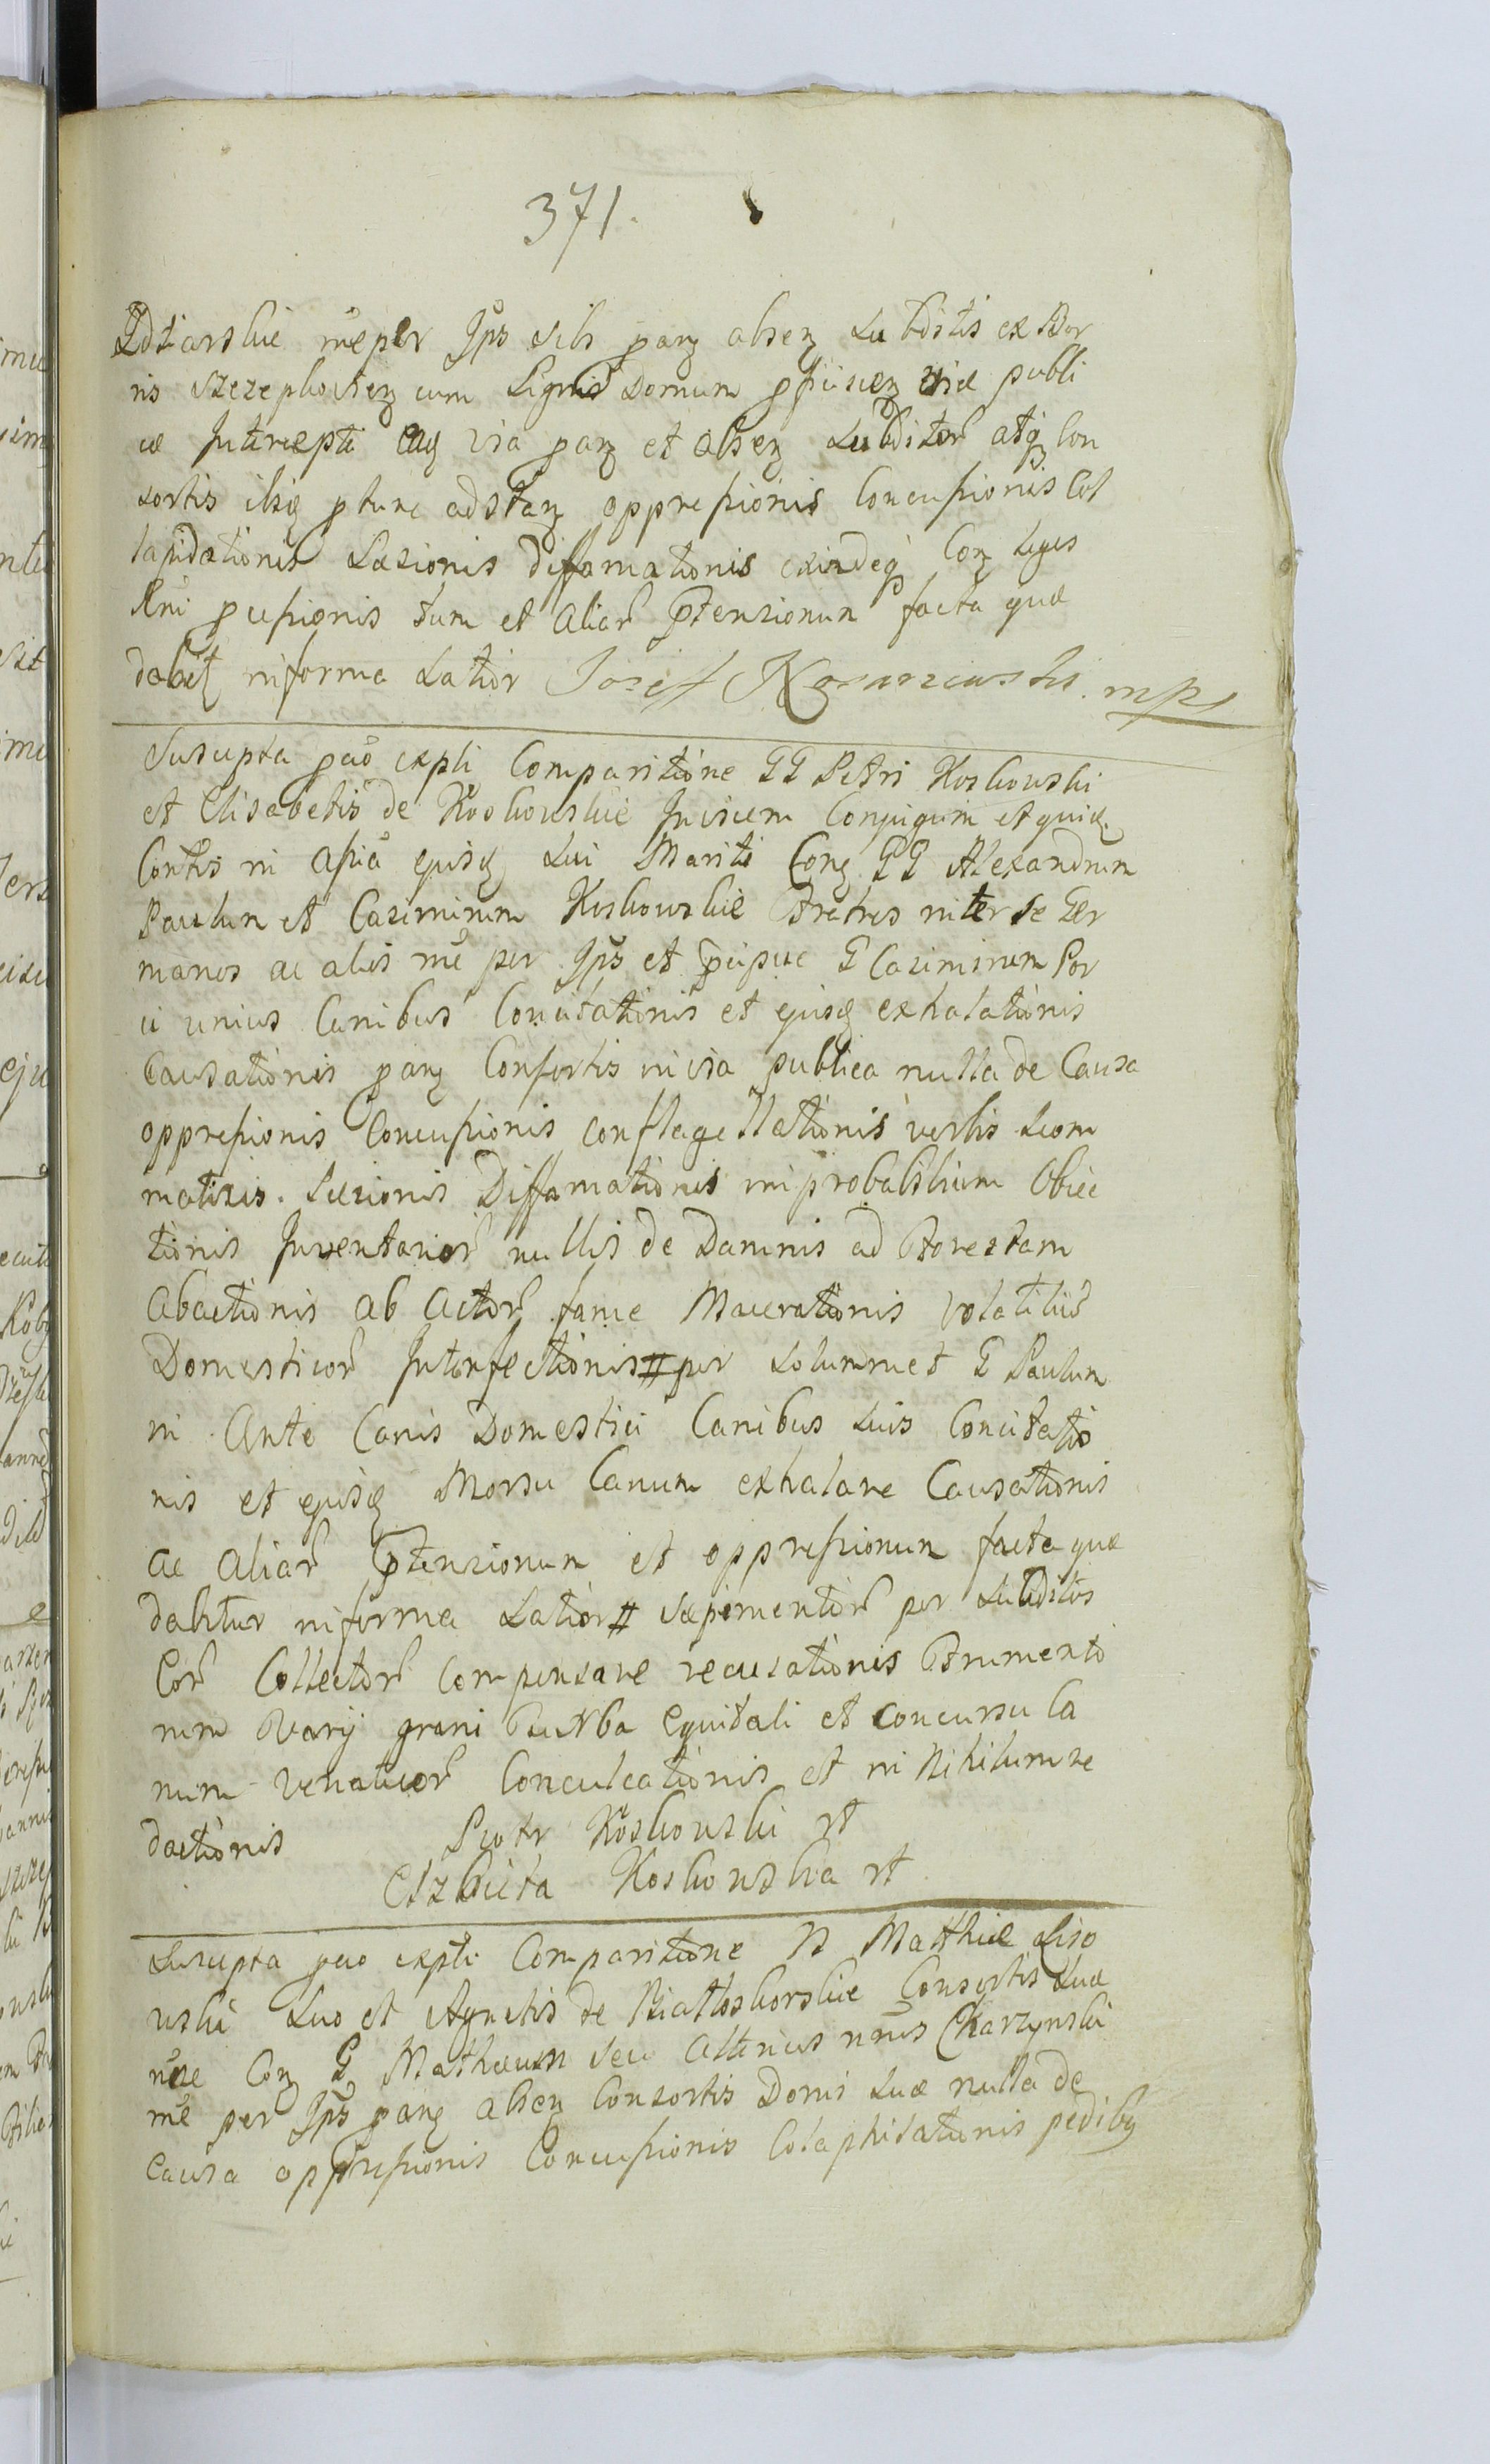 371.
Zdziarskie mẽ per Jps sibi parz absenz Subditis ex Bor
ris Szczepkowienz cum Lignis Domum pficisenz viæ publi
cæ Jntercepti eaq via parz et absenz Subditor atq Con
sortis ibiq ptunc adstanz oppressionis Concussionis Col
lapidationis Læsionis Diffamationis exindeq Conz Leges
Rni pcussionis tum et Aliar Ptensionum facta quæ
dabit informa Latior Josef Kossarzewski mps
Suscepta pcuõ expti Comparitione GG Petri Koskowski
et Elisabetis de Koskowskie Jnvicem Conjugum et quid.
Contis in Assiã ejusq Sui Mariti Conz GG Alexandrum
Paulum et Casimirum Koskowskie Fratres inter se Ger
manos ac alios mẽ per Jps et pcipue G Casimirum Por
ci unius Canibus Concitationis et ejusq exhalationis
Causationis parz Consortis in via publica nulla de Causa
oppressionis Concussionis conflagellationis verbis Scom
maticis. Læsionis Diffamationis improbabilium Obiec
tionis Jnventarior nullis de Damnis ad Forestam
Abactionis ab Actor fame Macerationis Volatiliũ
Domesticor Jnterfectionis # per Solummet G Paulum
in Ante Canis Domestici Canibus Suis Concitatio
nis et ejusq Morsu Canum exhalare Causationis
ac Aliar Ptensionum et oppressionum facta quæ
dabitur informa Latior # sæpimentor per Subditos
Eor Collector compensare recusationis Frumento
rum Varij grani Turba Equitali et concursu Ca
num Venaticor Conculcationis et in Nihilum re
dactionis Piotr Koskowski rt
Elzbieta Koskowska rt
Suscepta pcuo expti Comparitione N Matthiæ Liso
wski Suo et Agnetis de Białoskorskie Consortis Suæ
nõie Conz G Mathæum seu Alterius nõis Charzynski
mẽ per Jps parz absenz Consortis Domi Suæ nulla de
Causa oppressionis Concussionis Colaphisationis pedibq